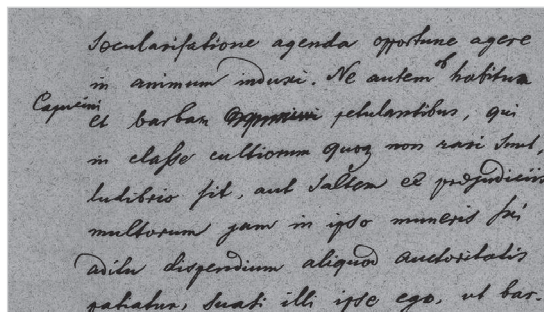 Soecularisatione agenda opportune agere
in animum induxi. Ne autem ob habitum
Capucini
et barbam petulantibus, qui
in classe cultiorum quoq non rari sunt,
ludibrio sit, aut saltem ex praejudiciis
multorum jam in ipso muneris sui
aditu dispendium aliquod auctoritatis
patiatur, suasi illi ipse ego, ut bar-